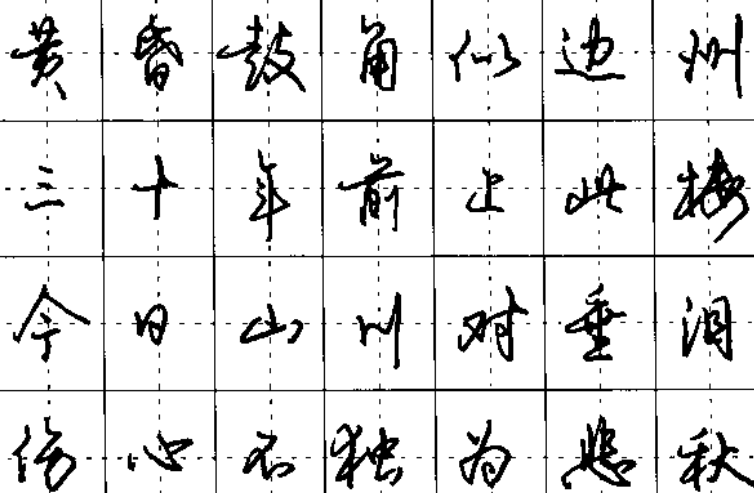 黄昏鼓角似边州
三十年前上此楼
今日山川对垂泪
伤心不独为悲秋